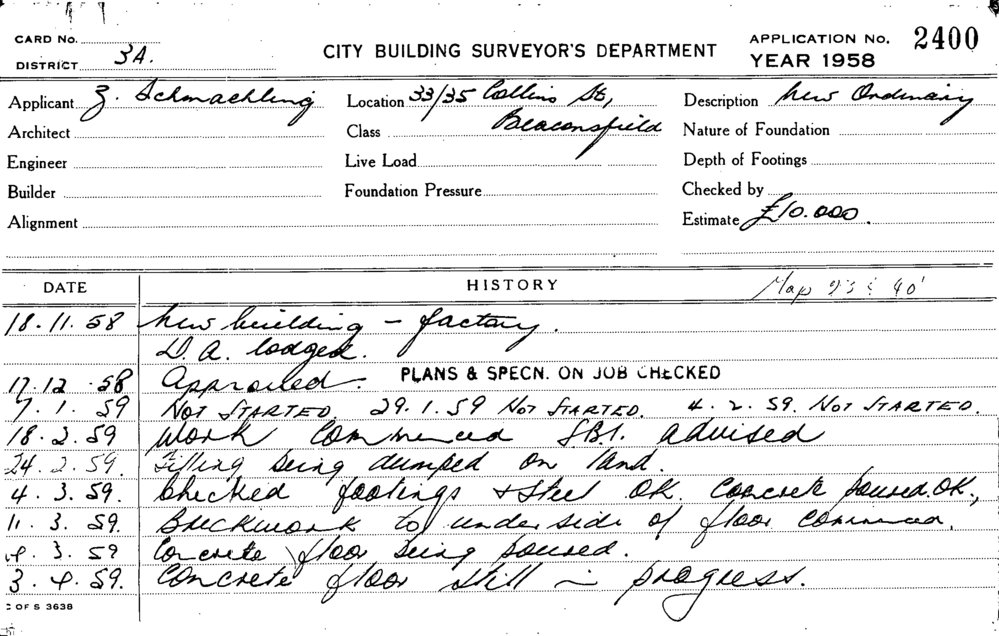 CARD No.
DISTRICT 3A.
CITY BUILDING SURVEYOR'S DEPARTMENT
APPLICATION No. 2400
YEAR 1958
Applicant Z. Schmaehling Location 33/35 Collins St, Description New Ordinary
Architect Class Beaconsfield Nature of Foundation
Engineer Live Load Depth of Footings
Builder Foundation Pressure Checked by
Alignment Estimate £10.000.
DATE HISTORY Map 23 & 40'
18.11.58 New building – factory.
D.A. lodged.
17.12.58 Approved. PLANS & SPECN. ON JOB CHECKED
7.1.59 NOT STARTED. 29.1.59 NOT STARTED. 4.2.59. NOT STARTED.
18.2.59 Work Commenced advised
24.2.59. Filling being dumped on land.
4.3.59. Checked footings & steel OK. Concrete poured. OK.,
11.3.59. Brickwork to under side of floor commenced.
3.59 Concrete floor being poured.
3.4.59. Concrete floor still in progress.
C OF S 3638